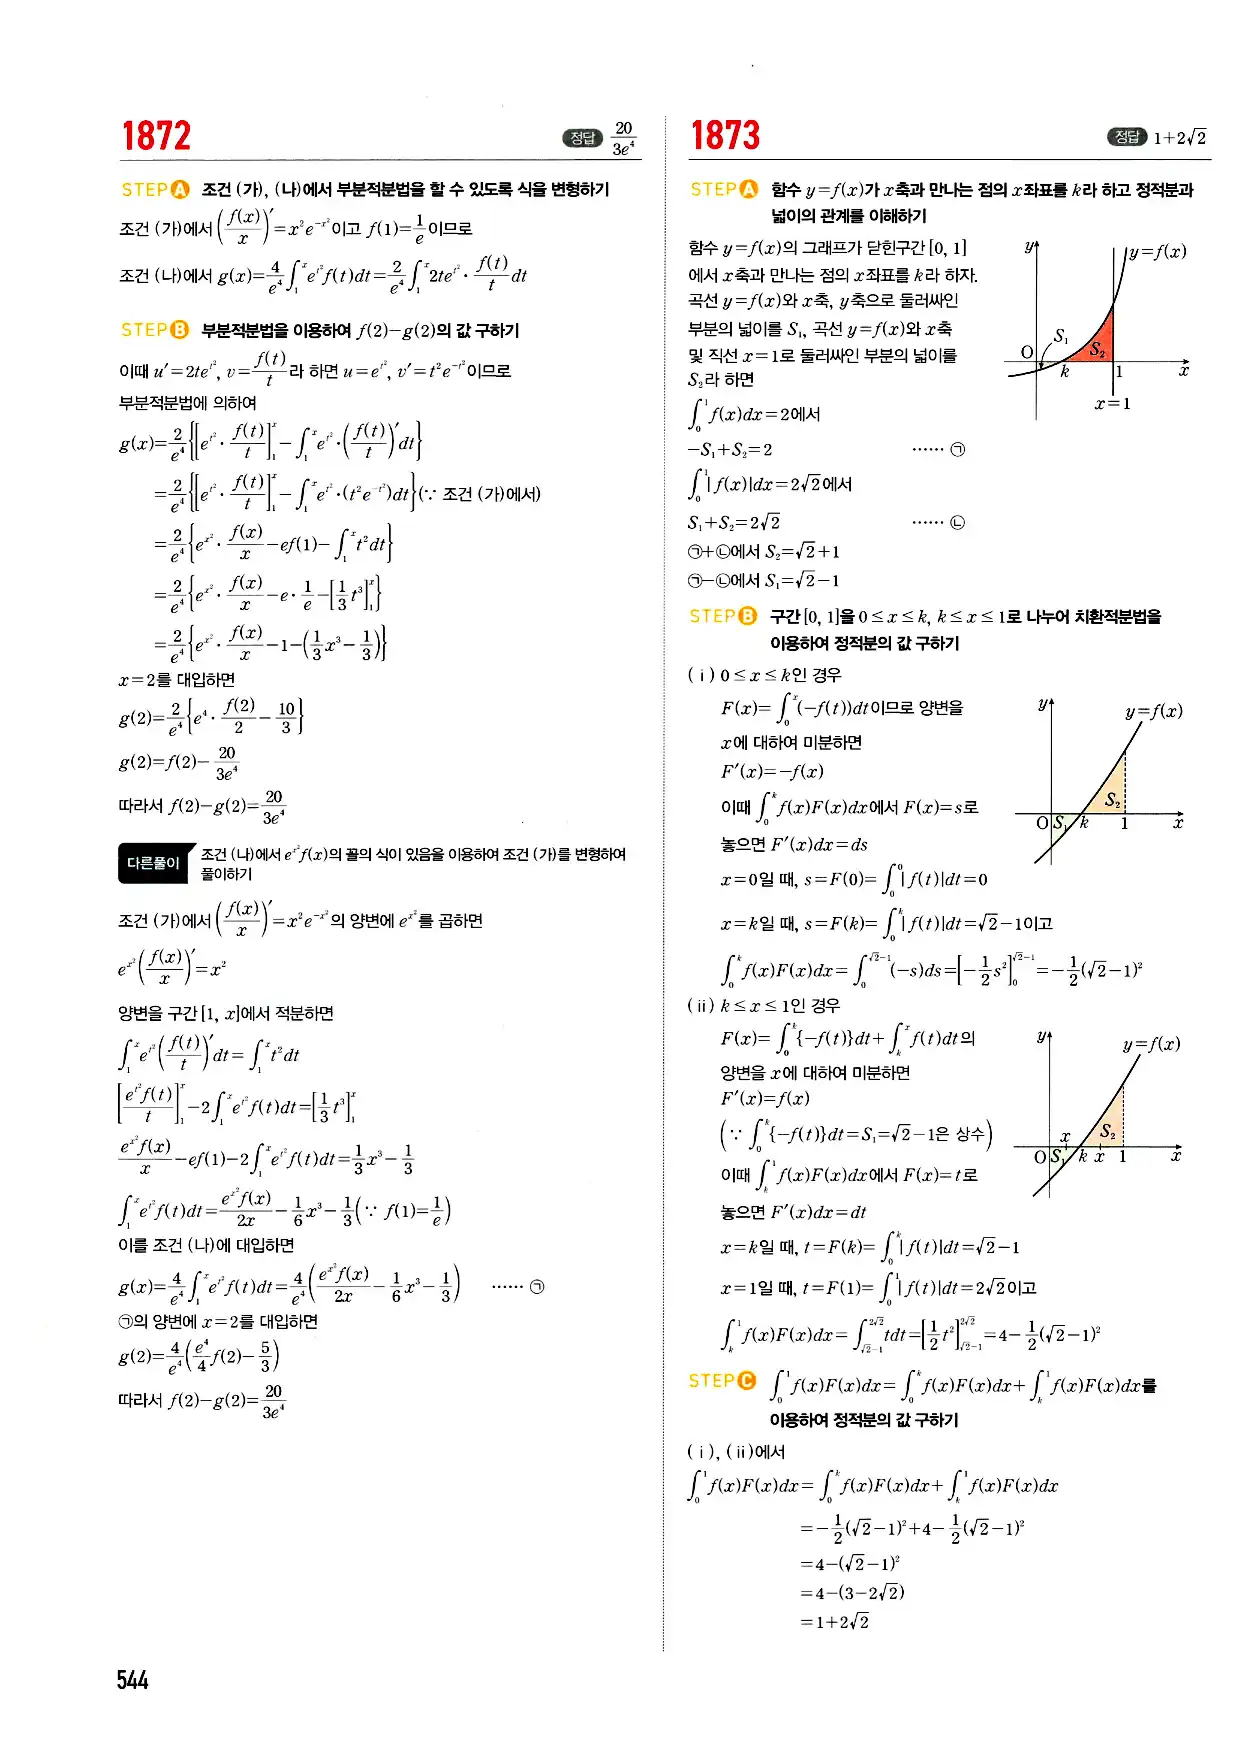 1872
정답 20/(3e⁴)
STEP A 조건 (가), (나)에서 부분적분법을 할 수 있도록 식을 변형하기
조건 (가)에서 (f(x)/x)′=x²e^(−x²)이고 f(1)=1/e이므로
조건 (나)에서 g(x)=4/e⁴ ∫₁ˣ e^(t²)f(t)dt=2/e⁴ ∫₁ˣ 2te^(t²)·f(t)/t dt
STEP B 부분적분법을 이용하여 f(2)−g(2)의 값 구하기
이때 u′=2te^(t²), v=f(t)/t라 하면 u=e^(t²), v′=t²e^(−t²)이므로
부분적분법에 의하여
g(x)=2/e⁴{[e^(t²)·f(t)/t]₁ˣ−∫₁ˣ e^(t²)·(f(t)/t)′dt}
=2/e⁴{[e^(t²)·f(t)/t]₁ˣ−∫₁ˣ e^(t²)·(t²e^(−t²))dt}(∵ 조건 (가)에서)
=2/e⁴{e^(x²)·f(x)/x−ef(1)−∫₁ˣ t²dt}
=2/e⁴{e^(x²)·f(x)/x−e·1/e−[1/3 t³]₁ˣ}
=2/e⁴{e^(x²)·f(x)/x−1−(1/3 x³−1/3)}
x=2를 대입하면
g(2)=2/e⁴{e⁴·f(2)/2−10/3}
g(2)=f(2)−20/(3e⁴)
따라서 f(2)−g(2)=20/(3e⁴)
다른풀이 조건 (나)에서 e^(x²)f(x)의 꼴의 식이 있음을 이용하여 조건 (가)를 변형하여
풀이하기
조건 (가)에서 (f(x)/x)′=x²e^(−x²)의 양변에 e^(x²)를 곱하면
e^(x²)(f(x)/x)′=x²
양변을 구간 [1, x]에서 적분하면
∫₁ˣ e^(t²)(f(t)/t)′dt=∫₁ˣ t²dt
[e^(t²)f(t)/t]₁ˣ−2∫₁ˣ e^(t²)f(t)dt=[1/3 t³]₁ˣ
e^(x²)f(x)/x−ef(1)−2∫₁ˣ e^(t²)f(t)dt=1/3 x³−1/3
∫₁ˣ e^(t²)f(t)dt=e^(x²)f(x)/(2x)−1/6 x³−1/3(∵ f(1)=1/e)
이를 조건 (나)에 대입하면
g(x)=4/e⁴ ∫₁ˣ e^(t²)f(t)dt=4/e⁴(e^(x²)f(x)/(2x)−1/6 x³−1/3) ······ ㉠
㉠의 양변에 x=2를 대입하면
g(2)=4/e⁴(e⁴/4 f(2)−5/3)
따라서 f(2)−g(2)=20/(3e⁴)
544
1873
정답 1+2√2
STEP A 함수 y=f(x)가 x축과 만나는 점의 x좌표를 k라 하고 정적분과
넓이의 관계를 이해하기
함수 y=f(x)의 그래프가 닫힌구간 [0, 1]
에서 x축과 만나는 점의 x좌표를 k라 하자.
곡선 y=f(x)와 x축, y축으로 둘러싸인
부분의 넓이를 S₁, 곡선 y=f(x)와 x축
및 직선 x=1로 둘러싸인 부분의 넓이를
S₂라 하면
y
y=f(x)
S₁
O
S₂
k
1
x
x=1
∫₀¹ f(x)dx=2에서
−S₁+S₂=2 ······ ㉠
∫₀¹ |f(x)|dx=2√2에서
S₁+S₂=2√2 ······ ㉡
㉠+㉡에서 S₂=√2+1
㉠−㉡에서 S₁=√2−1
STEP B 구간 [0, 1]을 0≤x≤k, k≤x≤1로 나누어 치환적분법을
이용하여 정적분의 값 구하기
(ⅰ) 0≤x≤k인 경우
F(x)=∫₀ˣ(−f(t))dt이므로 양변을
x에 대하여 미분하면
F′(x)=−f(x)
이때 ∫₀ᵏ f(x)F(x)dx에서 F(x)=s로
놓으면 F′(x)dx=ds
y
y=f(x)
S₂
O
S₁
k
1
x
x=0일 때, s=F(0)=∫₀⁰ |f(t)|dt=0
x=k일 때, s=F(k)=∫₀ᵏ |f(t)|dt=√2−1이고
∫₀ᵏ f(x)F(x)dx=∫₀^(√2−1) (−s)ds=[−1/2 s²]₀^(√2−1)=−1/2(√2−1)²
(ⅱ) k≤x≤1인 경우
F(x)=∫₀ᵏ{−f(t)}dt+∫ₖˣ f(t)dt의
양변을 x에 대하여 미분하면
F′(x)=f(x)
(∵ ∫₀ᵏ{−f(t)}dt=S₁=√2−1은 상수)
이때 ∫ₖ¹ f(x)F(x)dx에서 F(x)=t로
놓으면 F′(x)dx=dt
y
y=f(x)
x
S₂
O
S₁
k
x
1
x
x=k일 때, t=F(k)=∫₀ᵏ |f(t)|dt=√2−1
x=1일 때, t=F(1)=∫₀¹ |f(t)|dt=2√2이고
∫ₖ¹ f(x)F(x)dx=∫_(√2−1)^(2√2) tdt=[1/2 t²]_(√2−1)^(2√2)=4−1/2(√2−1)²
STEP C ∫₀¹ f(x)F(x)dx=∫₀ᵏ f(x)F(x)dx+∫ₖ¹ f(x)F(x)dx를
이용하여 정적분의 값 구하기
(ⅰ), (ⅱ)에서
∫₀¹ f(x)F(x)dx=∫₀ᵏ f(x)F(x)dx+∫ₖ¹ f(x)F(x)dx
=−1/2(√2−1)²+4−1/2(√2−1)²
=4−(√2−1)²
=4−(3−2√2)
=1+2√2